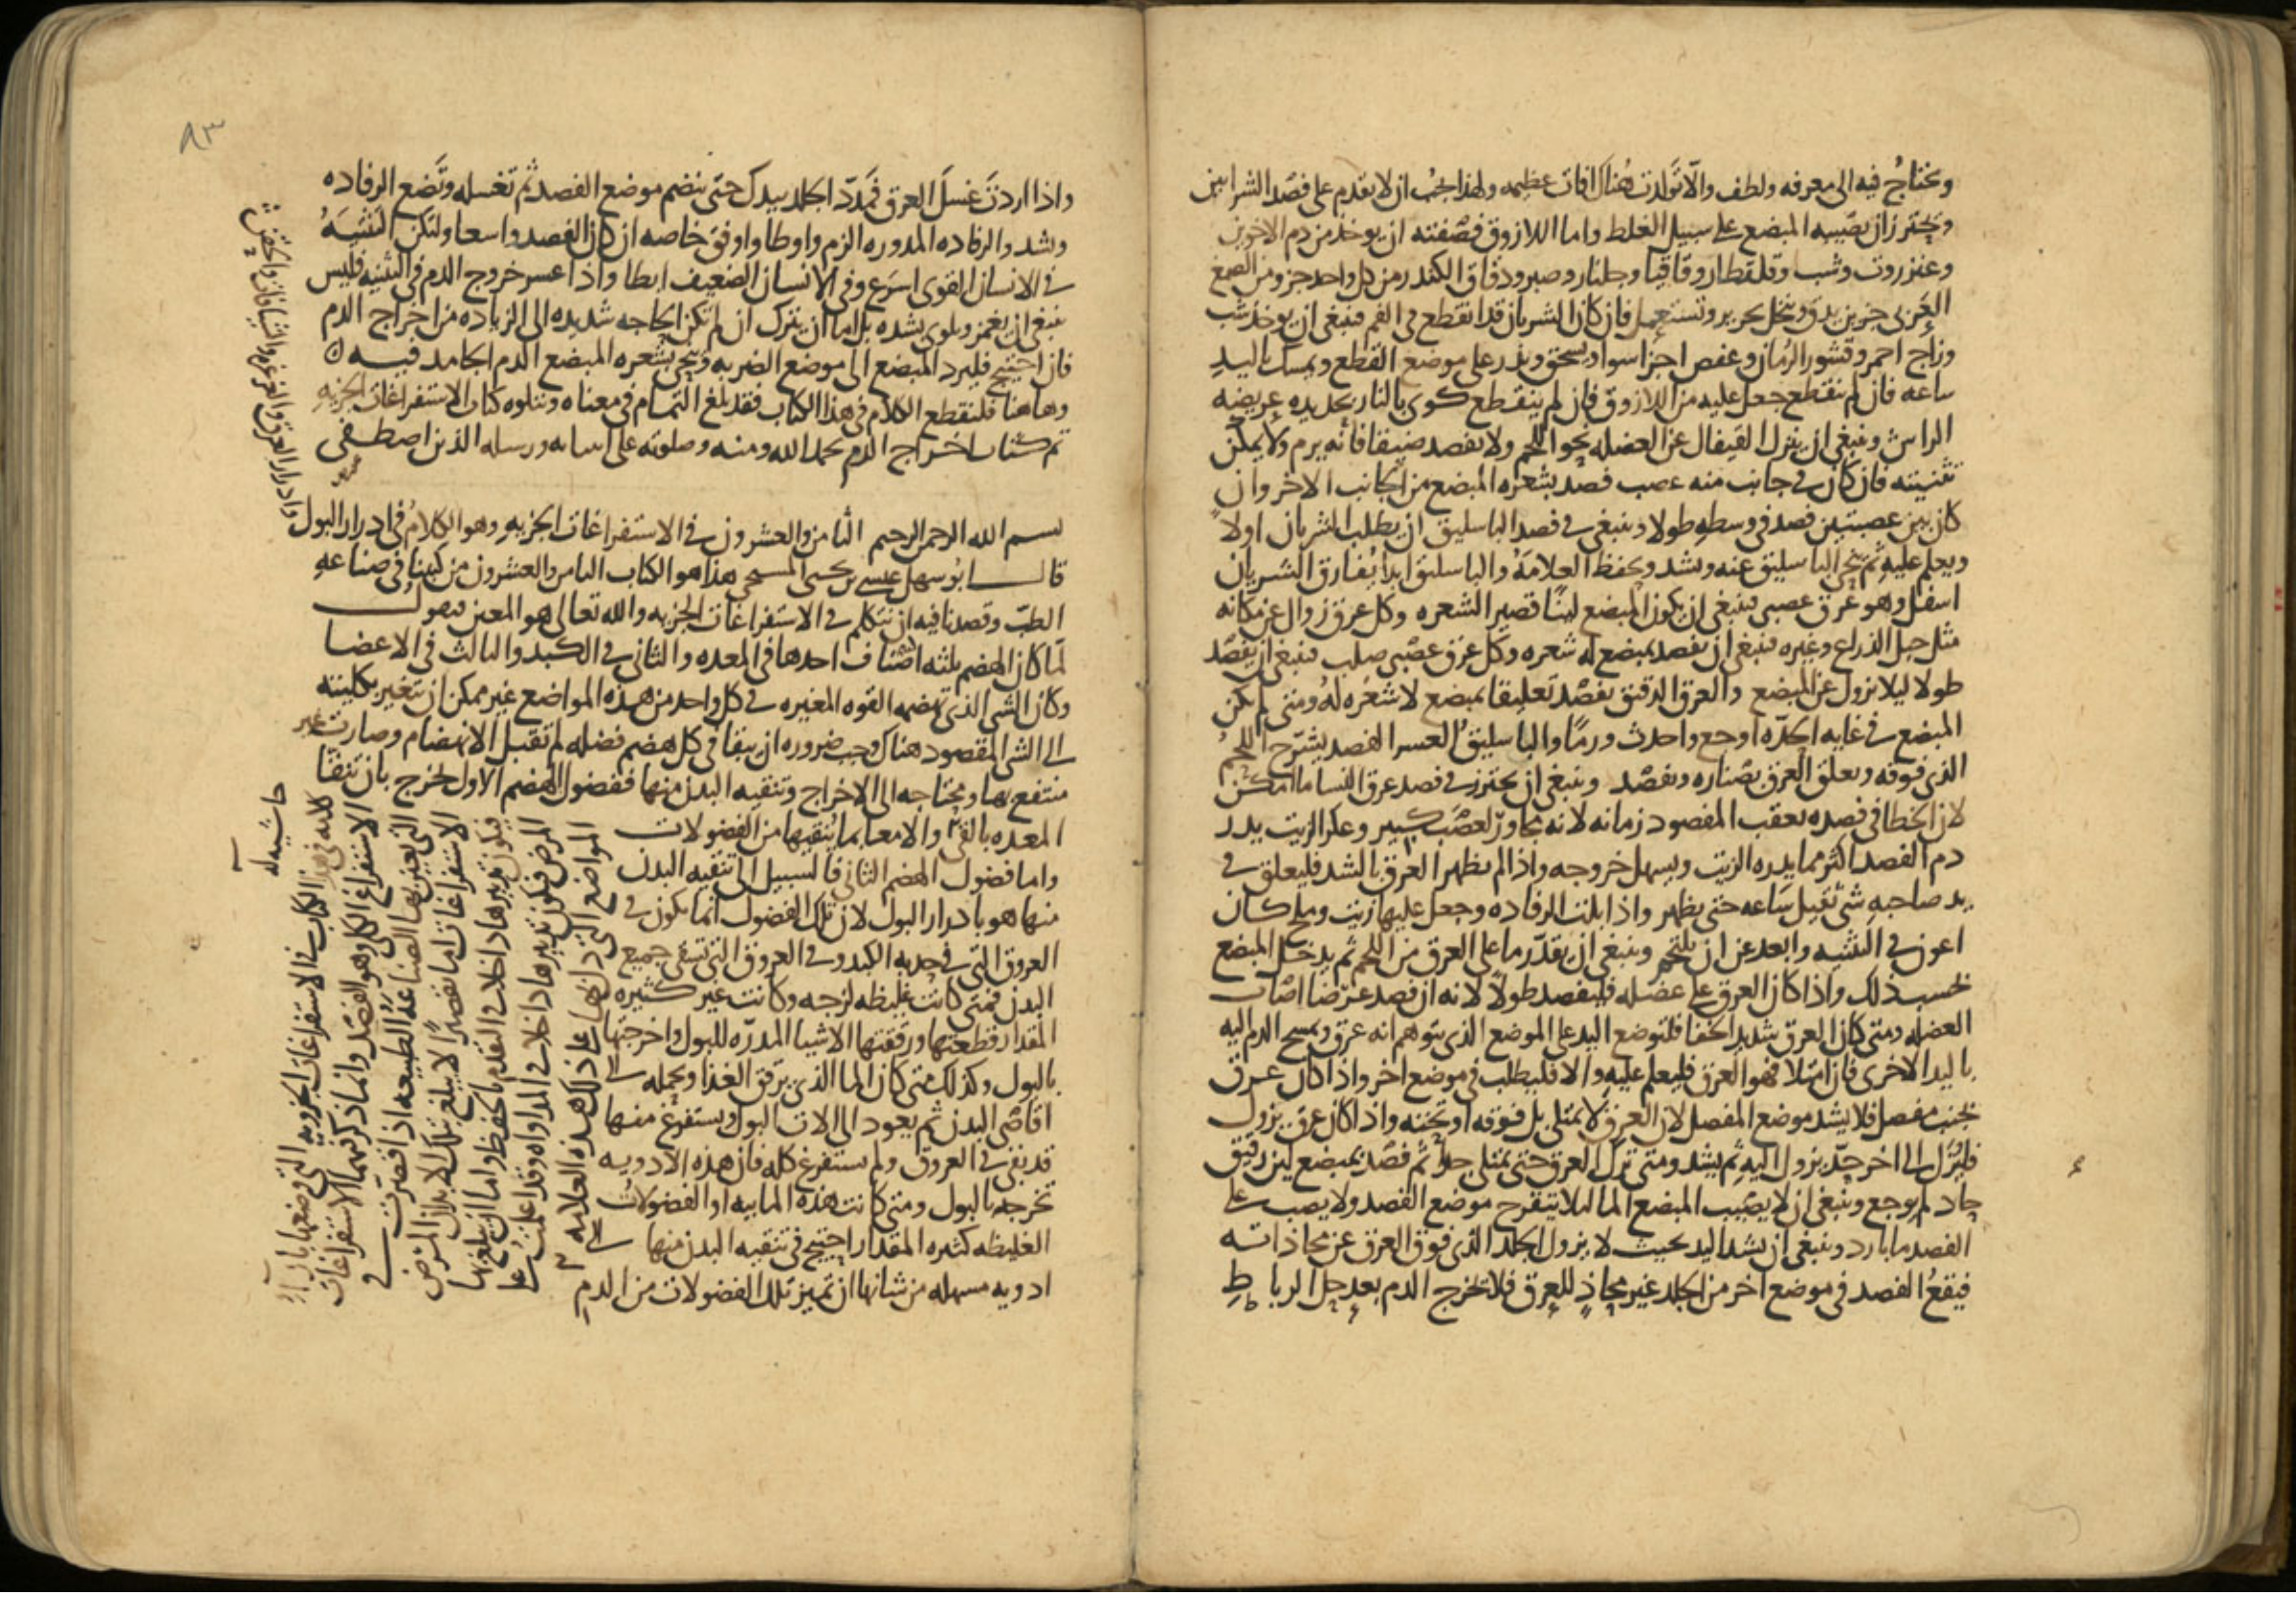 ونحتاج فيه الى معرفه ولطف والا تولدت هناك افات عظيمه ولهذا يجب ان لا يقدم على فصد الشرايين
ويحترز ان يصيبه المبضع على سبيل الغلط واما اللازوق فصفته ان يوخذ من دم الاخوين
وعنزروت وشب وقلقطار وقاقيا وجلنار وصبر ودقاق الكندر من كل واحد جزو ومن الصمغ
العربي جزوين يدق وينخل بحرير وتستعمل فان كان الشريان قد انقطع في الفم فينبغي ان يوخذ شب
وزاج احمر وقشور الرمان وعفص اجزا سوا ويسحق ويذر على موضع القطع ويمسك باليد
ساعه فان لم ينقطع جعل عليه من اللازوق فان لم ينقطع كوى بالنار بحديده عريضه
الراس وينبغي ان ينزل القيفال عن العضله نحو اللحم ولا يفصد ضيقا فانه يرم ولا يمكن
تثنيته فان كان في جانب منه عصب فصد بشعره المبضع من الجانب الاخر وان
كان بين عصبتين فصد في وسطه طولا وينبغي في فصد الباسليق ان يطلب الشريان اولا
ويعلم عليه ثم ينحي الباسليق عنه ويشد ويحفظ العلامه والباسليق ابدا يفارق الشريان
اسفل وهو عرق عصبي فينبغي ان يكون المبضع لينا قصير الشعره وكل عرق زوال عن مكانه
مثل حبل الذراع وغيره فينبغي ان يفصد بمبضع له شعره وكل عرق عصبي صلب فينبغي ان يفصد
طولا ليلا يزول عن المبضع والعرق الدقيق يفصد تعليقا بمبضع لا شعره له ومتى لم يكن
المبضع في غايه الحده اوجع واحدث ورما والباسليق العسر الفصد يشرح اللحم
الذي فوقه ويعلق العرق بصناره ويفصد وينبغي ان يحترز في فصد عرق النسا ما امكن
لان الخطا في فصده يعقب المفصود زمانه لانه مجاور لعصب كبير وعكر الزيت يدر
دم الفصد اكثر مما يدره الزيت ويسهل خروجه واذا لم يظهر العرق بالشد فليعلق في
يد صاحبه شي ثقيل ساعه حتى يظهر واذا بلت الرفاده وجعل عليها زيت وملح كان
اعون في التثنيه وابعد عن ان يلتحم وينبغي ان يقدر ما على العرق من اللحم ثم يدخل المبضع
بحسب ذلك واذا كان العرق على عضله فليفصد طولا لانه ان فصد عرضا اصاب
العضله ومتى كان العرق شديد الخفا فلتوضع اليد على الموضع الذي يتوهم انه عرق ويمسح الدم اليه
باليد الاخرى فان امتلا فهو العرق فليعلم عليه والا فليطلب في موضع اخر واذا كان عرق
بجنب مفصل فلا يشد موضع المفصل لان العرق لا يمتلي بل فوقه او تحته واذا كان عرق يزول
فليترك الى اخر حد يزول اليه ثم يشد ومتى ترك العرق حتى يمتلي جدا ثم فصد بمبضع لين دقيق
حاد لم يوجع وينبغي ان لا يصيب المبضع الما ليلا يتقرح موضع الفصد ولا يصب على
الفصد ما بارد وينبغي ان يشد اليد بحيث لا يزول الجلد الذي فوق العرق عن محاذاته
فيقع الفصد في موضع اخر من الجلد غير محاذ للعرق فلا تخرج الدم بعد حل الرباط
٨٣
واذا اردت غسل العرق فمدد الجلد بيدك حتى ينضم موضع الفصد ثم تغسله وتضع الرفاده
وتشد والرفاده المدوره الزم واوطا واوفق خاصه ان كان الفصد واسعا ولتكن التثنيه
في الانسان القوي اسرع وفي الانسان الضعيف ابطا واذا عسر خروج الدم في التثنيه فليس
ينبغي ان يغمز ويلوى بشده بل اما ان يترك ان لم تكن الحاجه شديده الى الزياده من اخراج الدم
فان احتيج فليرد المبضع الى موضع الضربه وينحي بشعره المبضع الدم الجامد فيه
وهاهنا فلنقطع الكلام في هذا الكتاب فقد بلغ التمام في معناه ونتلوه كتاب الاستفراغات الجزيه
تم كتاب اخراج الدم بحمد الله ومنه وصلوته على انبيايه ورسله الذين اصطفى
بسم الله الرحمن الرحيم الثامن والعشرون في الاستفراغات الجزيه وهو الكلام في ادرار البول
قال ابو سهل عيسى بن يحيى المسيحي هذا هو الكتاب الثامن والعشرون من كتبنا في صناعه
الطب وقصدنا فيه ان نتكلم في الاستفراغات الجزيه والله تعالى هو المعين فنقول
لما كان الهضم ثلثه اصناف احدها في المعده والثاني في الكبد والثالث في الاعضا
وكان الشي الذي تهضمه القوه المغيره في كل واحد من هذه المواضع غير ممكن ان يتغير بكليته
الى الشي المقصود هناك وجب ضروره ان يبقا في كل هضم فضله لم تقبل الانهضام وصارت غير
منتفع بها ويحتاجه الى الاخراج وتنقيه البدن منها ففضول الهضم الاول تخرج بان تنقا
المعده بالقي والامعا بما ينقيها من الفضولات
واما فضول الهضم الثاني فالسبيل الى تنقيه البدن
منها هو بادرار البول لان تلك الفضول انما يكون في
العروق التي في حدبه الكبد وفي العروق التي تسقي جميع
البدن فمتى كانت غليظه لزجه وكانت غير كثيره
المقدار قطعتها ورققتها الاشيا المدره للبول واخرجتها
بالبول وكذلك متى كان الما الذي يرقق الغذا ويحمله الى
اقاصي البدن ثم يعود الى الات البول ويستفرغ منها
قد بقي في العروق ولم يستفرغ كله فان هذه الادويه
تخرجه بالبول ومتى كانت هذه المايه او الفضولات
الغليظه كثيره المقدار احتيج في تنقيه البدن منها الى
ادويه مسهله من شانها ان تميز تلك الفضولات من الدم
حاشيه له
كلامه في هذا الكتاب في الاستفراغات الجزويه التي وضعها
الاستفراغ الكلي وهو الفصد وانما ذكرنا الاستفراغات
التي يعين بها الصناعه الطبيعه اذا قصرت في
الاستفراغات اما تقصيرا لا يبلغ بتلك الابدان المرض
فيكون تدبيرها داخلا في التقدم بالحفظ واما ان يبلغ بها
المرض فيكون تدبيرها داخلا في المداواه وقد اعلمت على
المواضع التي دل بها على ذلك هذه العلامه